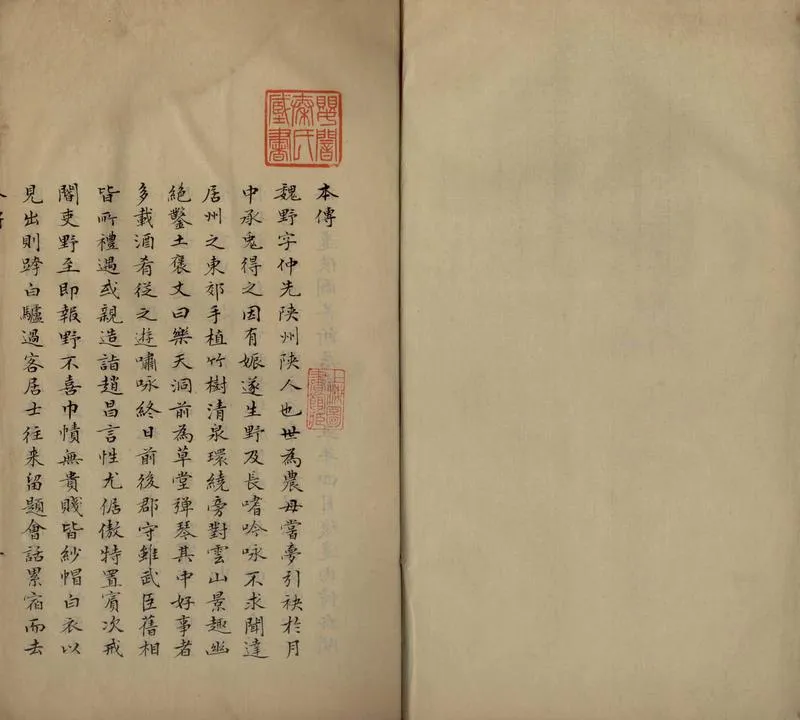 本傳
魏野字仲先陝州陝人也世為農母嘗夢引袂於月
中承兔得之因有娠遂生野及長嗜吟咏不求聞達
居州之東郊手植竹樹清泉環繞旁對雲山景趣幽
絕鑿土袤丈曰樂天洞前為草堂彈琴其中好事者
多載酒肴從之遊嘯咏終日前後郡守雖武臣舊相
皆所禮遇或親造詣趙昌言性尤倨傲特置賓次戒
閽吏野至即報野不喜巾幘無貴賤皆紗帽白衣以
見出則跨白驢過客居士往来留題會話累宿而去
秦氏
上海圖
書館藏